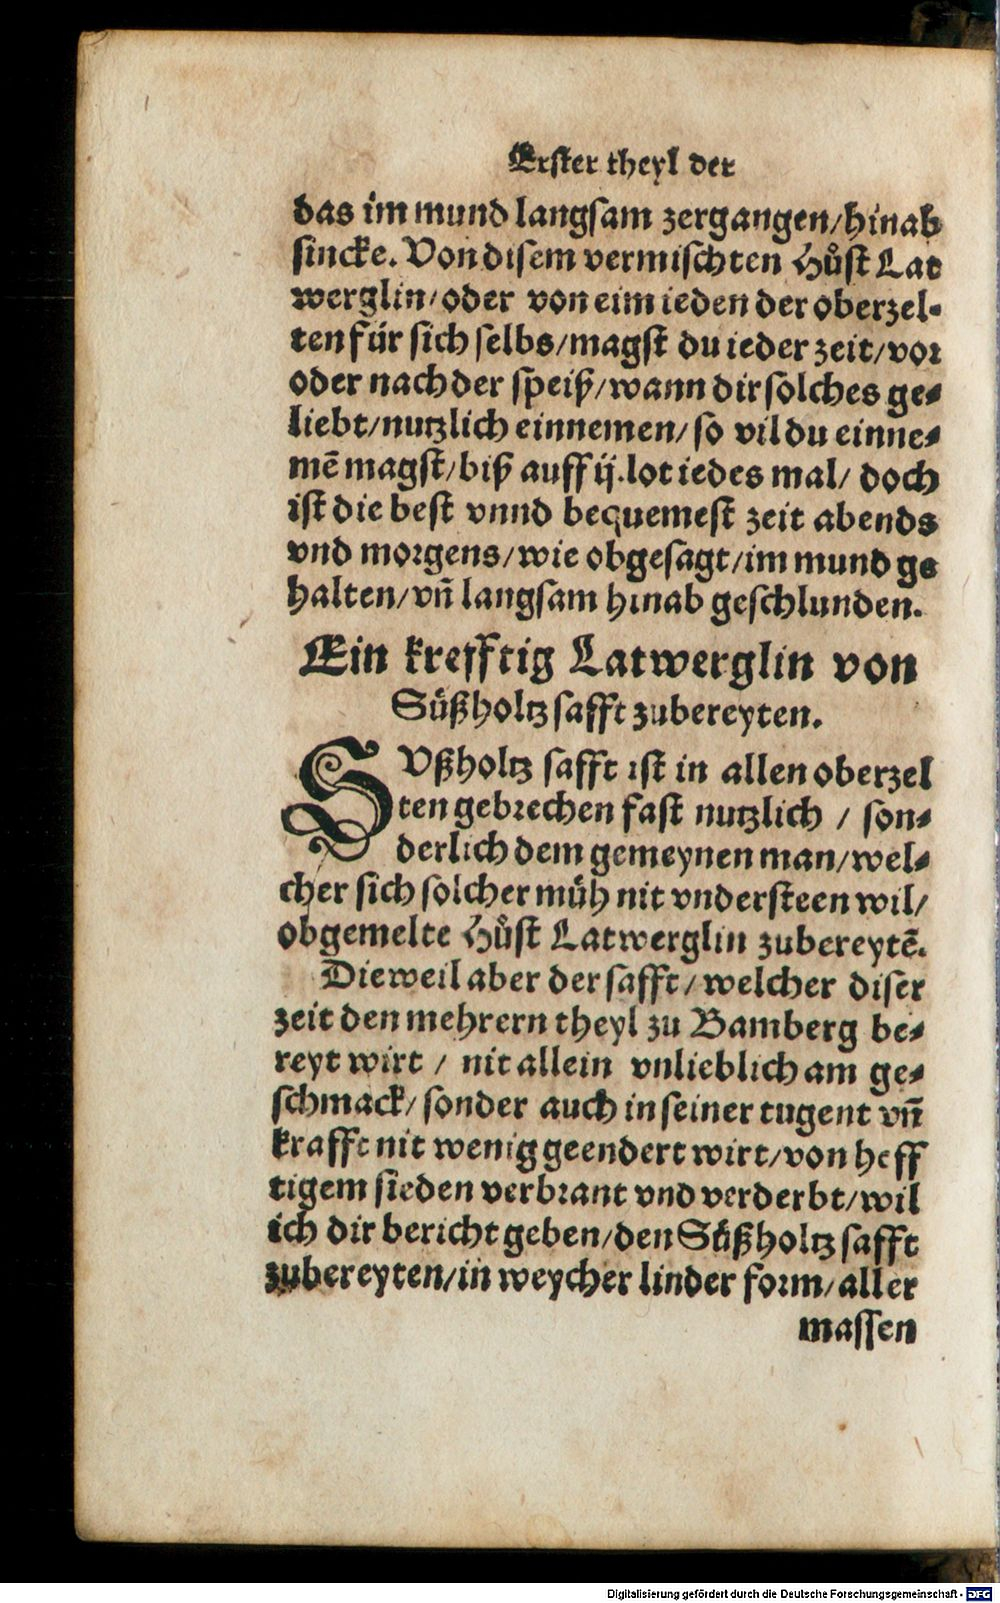 Erster theyl der
das im mund langsam zergangen/hinab
sincke. Von disem vermischten Hůst Lat
werglin/oder von eim ieden der oberzel-
ten für sich selbs/magst du ieder zeit/vor
oder nach der speiß/wann dir solches ge-
liebt/nutzlich einnemen/so vil du einne-
mē magst/biß auff ij.lot iedes mal/doch
ist die best vnnd bequemest zeit abends
vnd morgens/wie obgesagt/im mund ge
halten/vñ langsam hinab geschlunden.
Ein krefftig Latwerglin von
Süßholtz safft zubereyten.
SVßholtz safft ist in allen oberzel
ten gebrechen fast nutzlich / son-
derlich dem gemeynen man/wel-
cher sich solcher müh nit vndersteen wil/
obgemelte Hůst Latwerglin zubereytē.
Dieweil aber der safft/welcher diser
zeit den mehrern theyl zu Bamberg be-
reyt wirt / nit allein vnlieblich am ge-
schmack/sonder auch in seiner tugent vñ
krafft nit wenig geendert wirt/von heff
tigem sieden verbrant vnd verderbt/wil
ich dir bericht geben/den Süßholtz safft
zubereyten/in weycher linder form/aller
massen
Digitalisierung gefördert durch die Deutsche Forschungsgemeinschaft - DFG